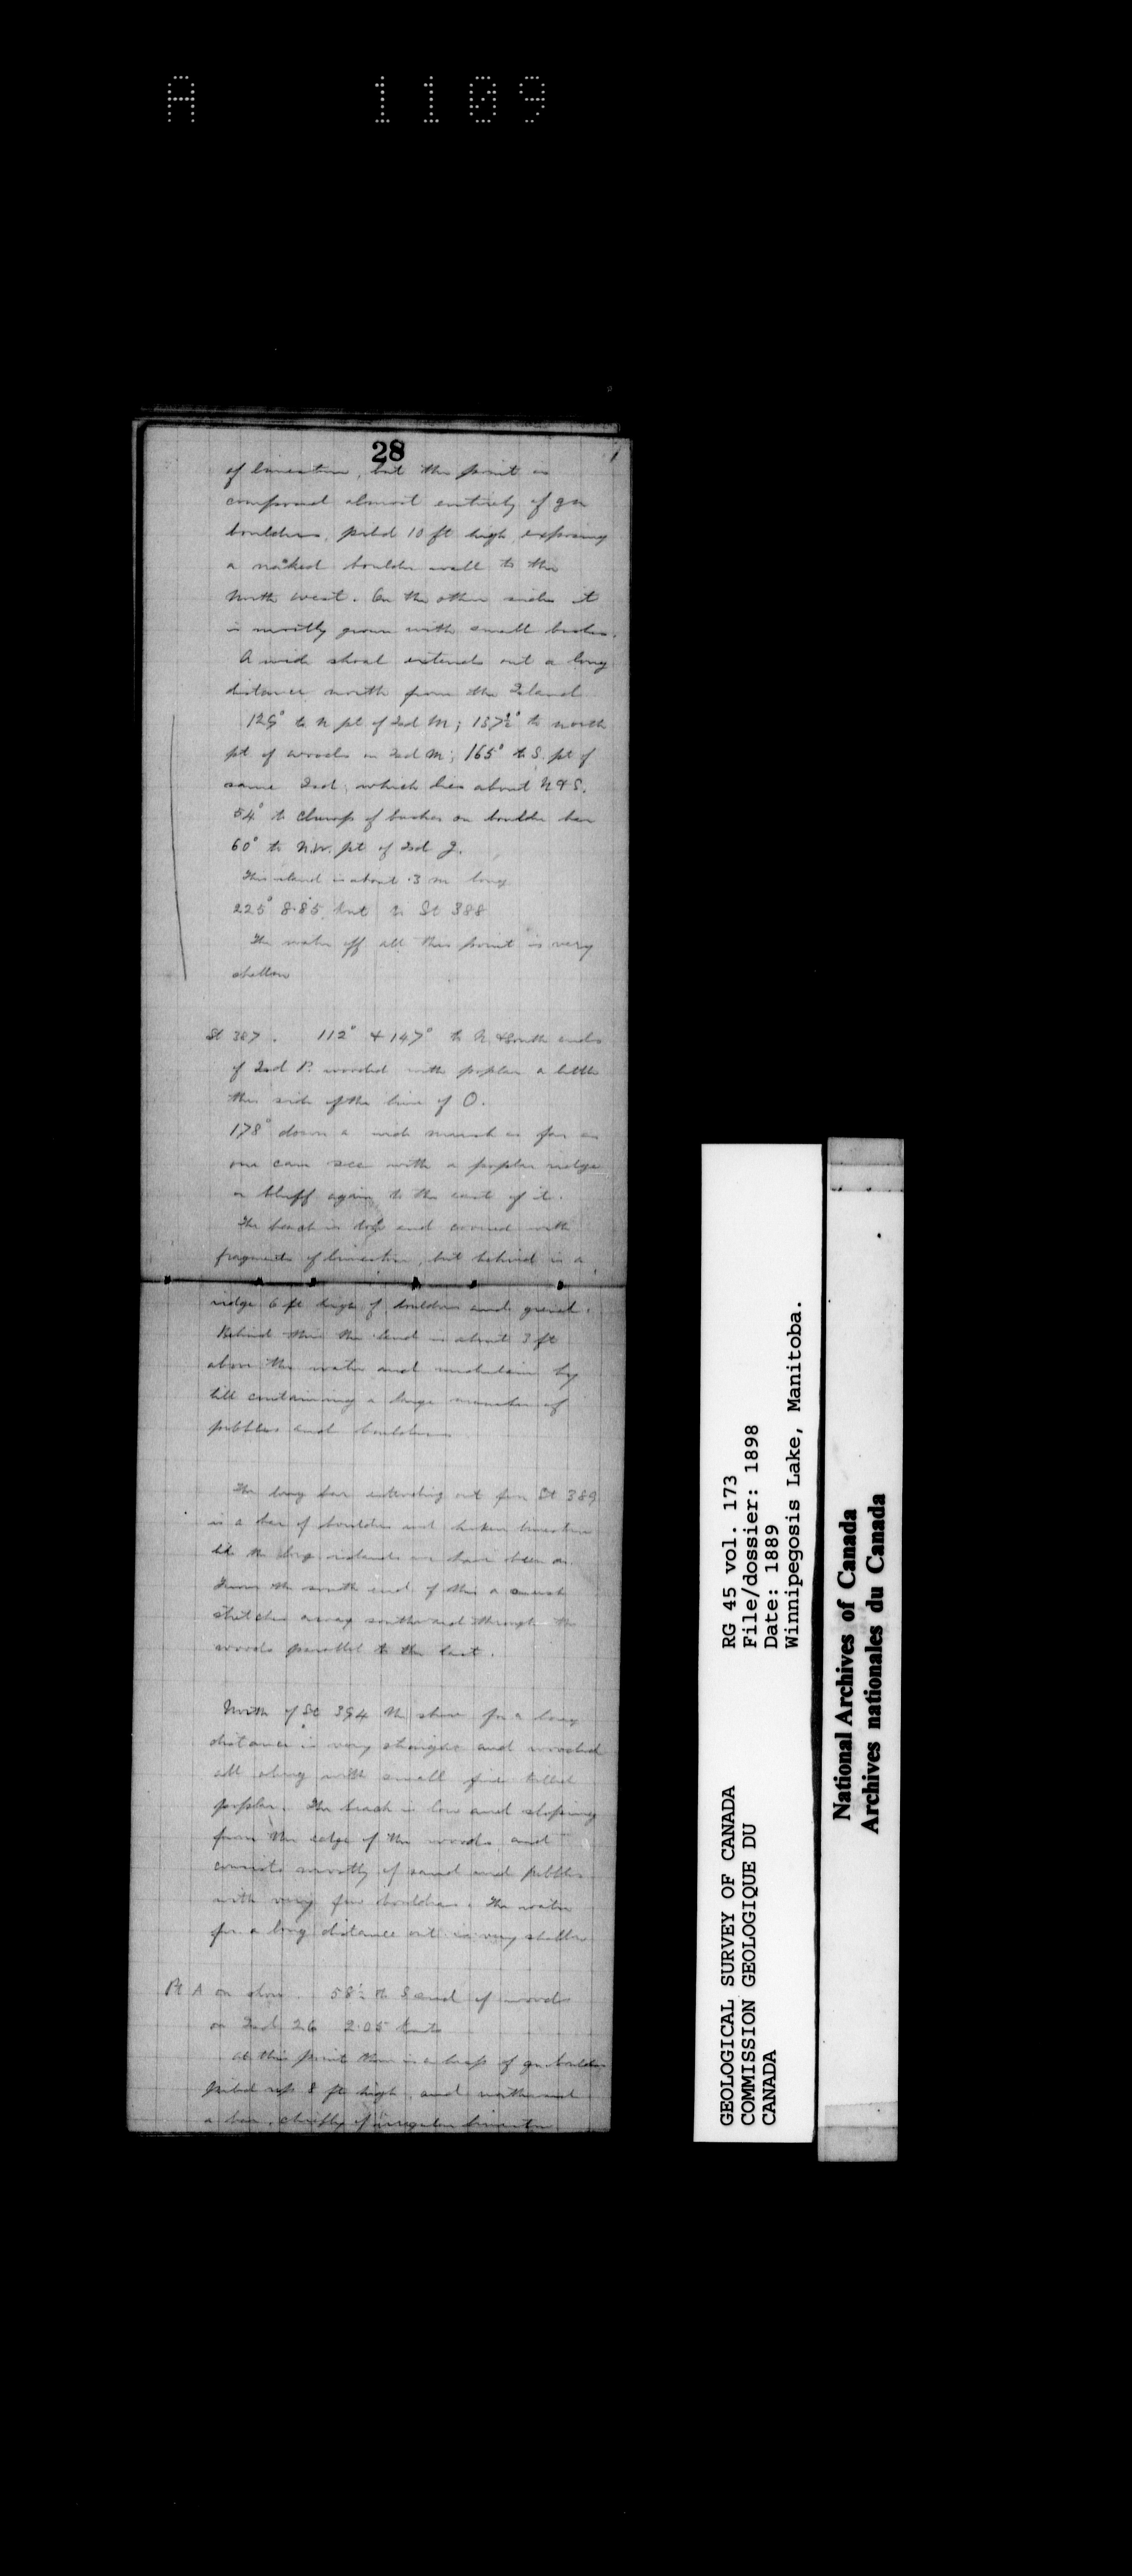 A 1109
28
of limestone, but the point is
composed almost entirely of gn
boulders, piled 10 ft high, exposing
a naked boulder wall to the
North west. On the other side it
is mostly grown with small bushes.
A wide shoal extends out a long
distance north from the Island
125° to N pt of Isd M; 137½° to north
pt of woods on Isd M; 165° to S. pt of
same Isd, which lies about N & S.
54° to clump of bushes on boulder bar
60° to N.W. pt of Isd J.
This island is about .3 m long
225° 8.85 knt to St 388
The water off all this point is very
shallow
St 387. 112° & 147° to N. & South ends
of Isd P. wooded with poplar a little
this side of the line of O.
178° down a wide marsh as far as
one can see with a poplar ridge
or bluff again to the east of it.
The beach is and covered with
fragments of limestone, but behind is a
ridge 6 ft high of boulders and gravel.
Behind this the land is about 3 ft
above the water and underlain by
till containing a large number of
pebbles and boulders
The long bar extending out from St 389
is a bar of boulders and broken limestone
like the big islands we have been on.
From the south end of this a marsh
stretches away southward through the
woods parallel to the last.
North of St 394 the shore for a long
distance is very straight and wooded
all along with small fire killed
poplar. The beach is low and sloping
from the edge of the woods and
consists mostly of sand and pebbles
with very few boulders. The water
for a long distance out is very shallow
Pt A on shore. 58½ to S end of woods
on Isd 26 2.05 knts
At this point there is a heap of gn boulders
piled up 8 ft high, and northward
a bar, chiefly of irregular limestone
GEOLOGICAL SURVEY OF CANADA
COMMISSION GEOLOGIQUE DU
CANADA
RG 45 vol. 173
File/dossier: 1898
Date: 1889
Winnipegosis Lake, Manitoba.
National Archives of Canada
Archives nationales du Canada